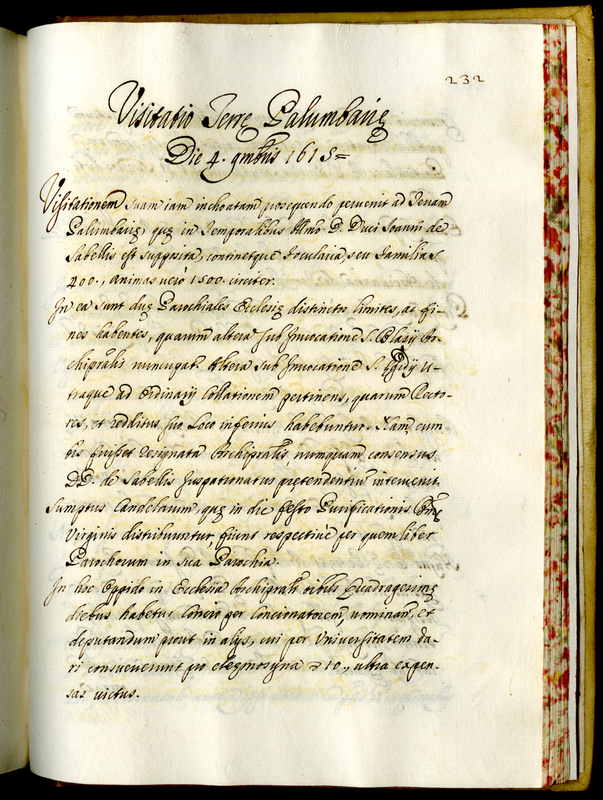 232
Visitatio Terrę Palumbarię
Die 4. 9mbris 1615=
Visitationem suam iam inchoatam prosequendo pervenit ad Terram
Palumbarię, quę in Temporalibus Illmo D. Duci Ioanni de
Sabellis est supposita, continetque focularia seu familias
400., animas verò 1500. circiter.
In ea sunt duę Parochiales Ecclesię distinctos limites, ac fi-
nes habentes, quarum altera sub Invocatione S. Blasij Ar-
chipralis nuncupat. Altera sub Invocatione S. Egidij u-
traque ad Ordinarij Collationem pertinens, quarum Recto-
res, et redditus suo Loco inferius habebuntur. Nam, cum
fuisset resignata Archipralis, numquam consensus
DD. de Sabellis Juspatronatus prętendentiũ intervenit.
Sumptus Candelarum, quę in die festo Purificationis Bmę
Virginis distribuuntur, fiunt respectivè per quemliber
Parochorum in sua Parochia.
In hoc Oppido in Ecclesia Archiprali oibus Quadragesimę
diebus habetur Concio per Concionatorem, nominan, et
deputandum prout in alijs, cui per Universitatem da-
ri consueverunt pro elęmosyna 10., ultra expen-
sas victus.